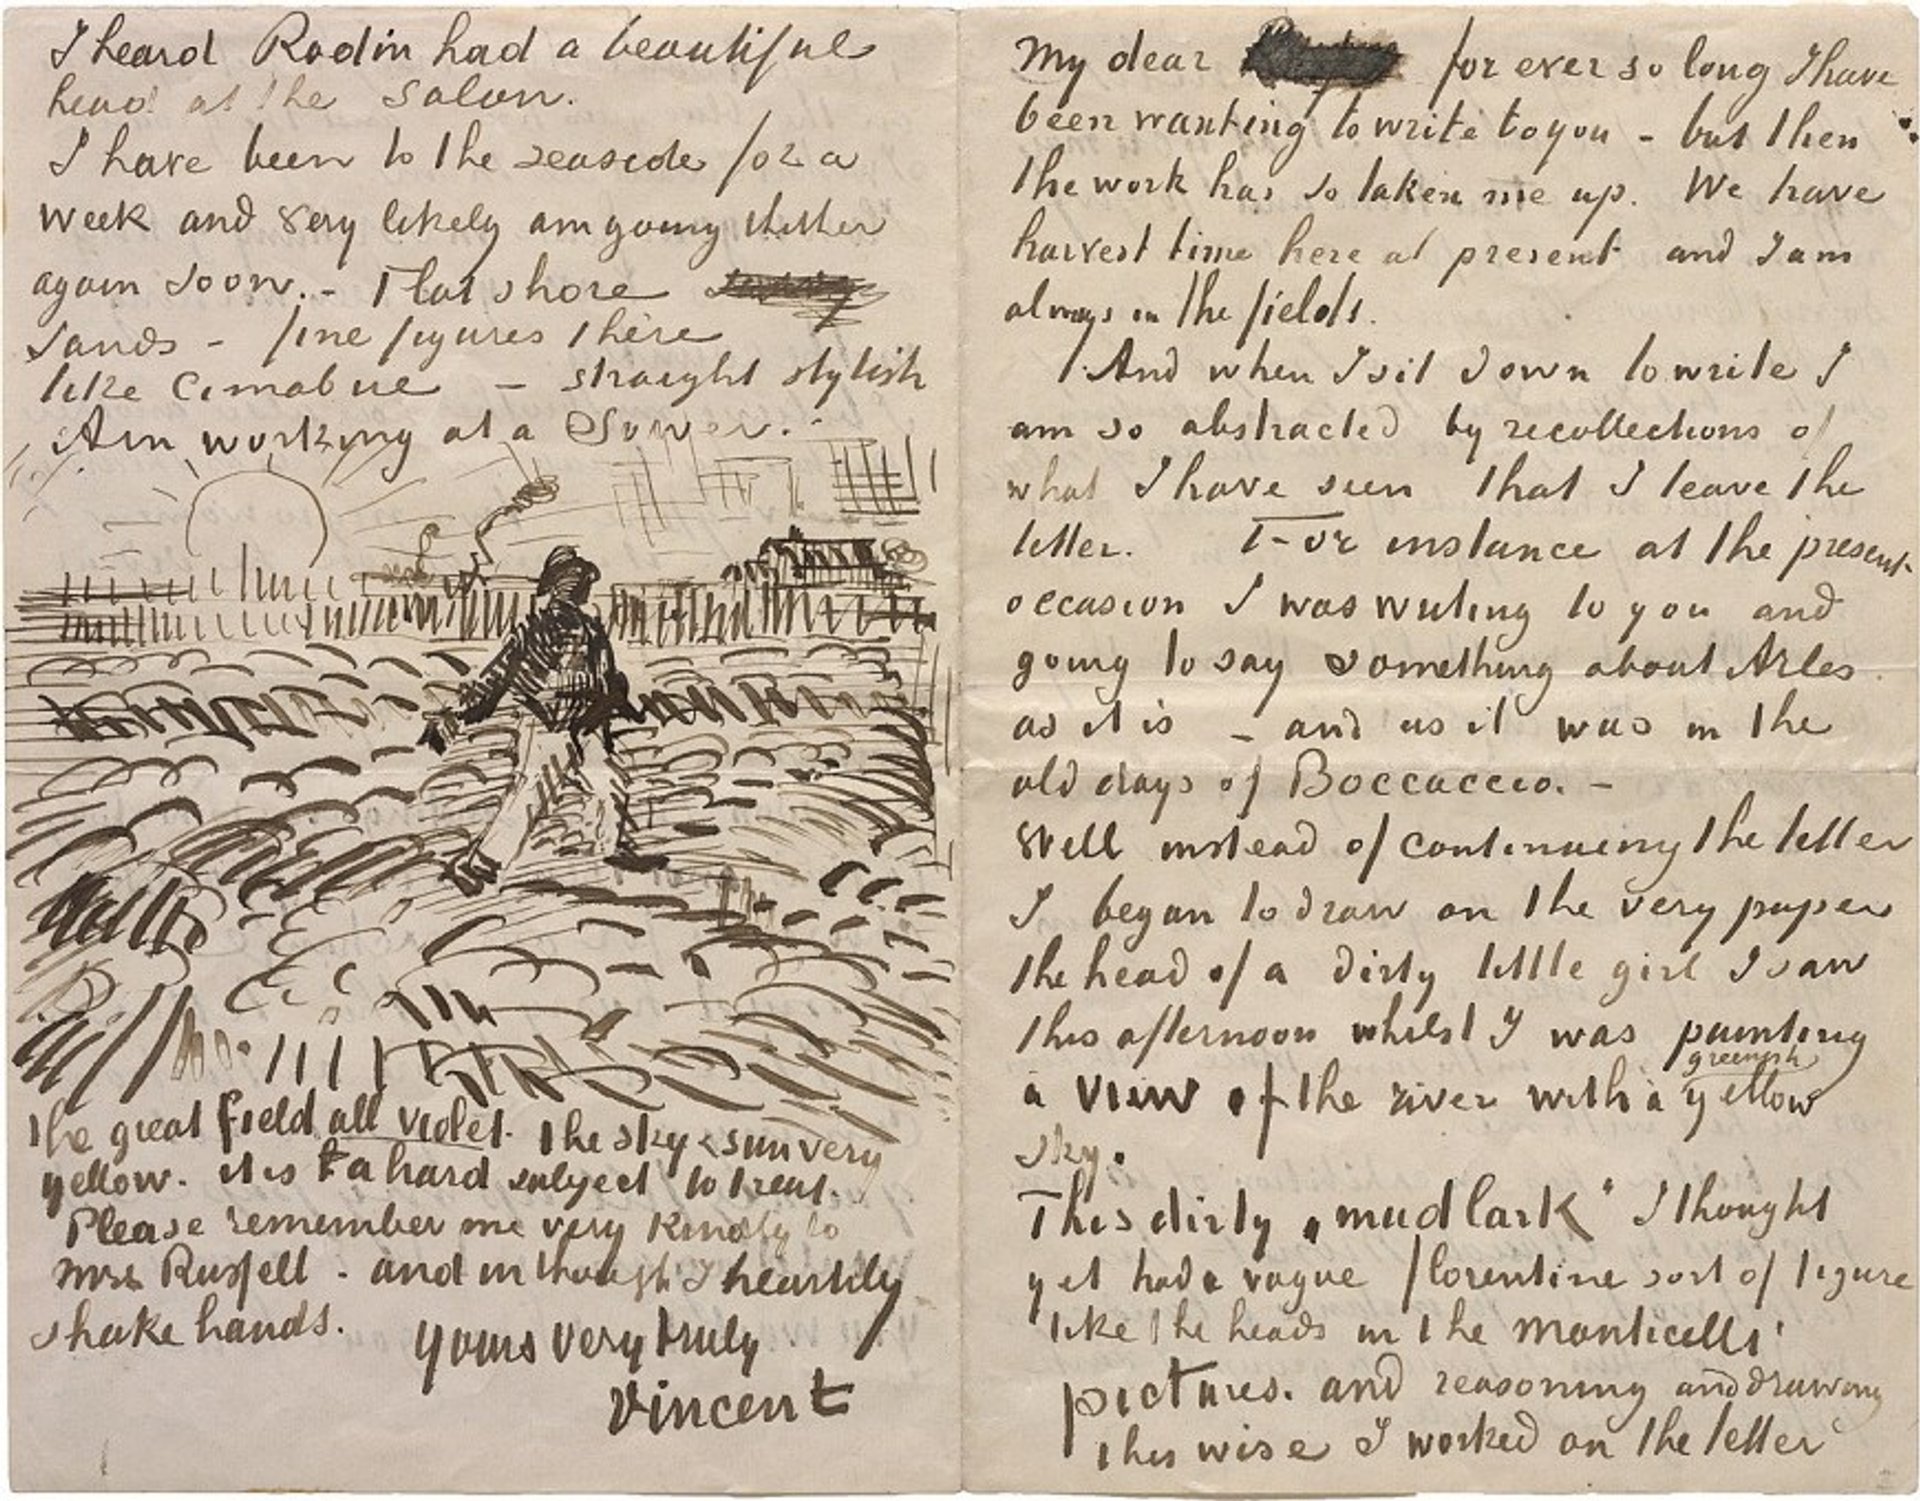 I heard Rodin had a beautiful
head at the Salon.
I have been to the seaside for a
week and very likely am going thither
again soon. - Flat shore
sands - fine figures there
like Cimabue - straight stylish
Am working at a Sower.
the great field all violet. the sky & sun very
yellow. it is a hard subject to treat.
Please remember me very kindly to
mrs Russell - and in thought I heartily
shake hands.
yours very truly
Vincent
My dear for ever so long I have
been wanting to write to you - but then
the work has so taken me up. We have
harvest time here at present and I am
always in the fields.
And when I sit down to write I
am so abstracted by recollections of
what I have seen that I leave the
letter. For instance at the present
occasion I was writing to you and
going to say something about Arles
as it is - and as it was in the
old days of Boccaccio. -
Well instead of continuing the letter
I began to draw on the very paper
the head of a dirty little girl I saw
this afternoon whilst I was painting
greenish
a view of the river with a yellow
sky.
This dirty „mudlark" I thought
yet had a vague florentine sort of figure
like the heads in the monticelli
pictures. and reasoning and drawing
this wise I worked on the letter